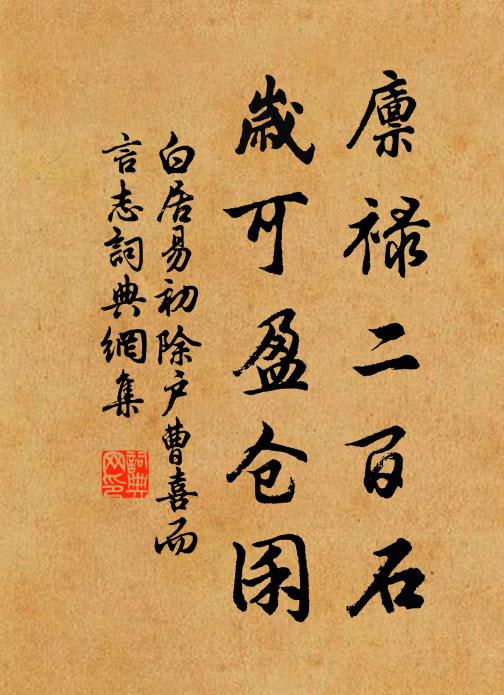 廪禄二百石
歲可盈仓囷
白居易初除户曹喜而
言志詞典網集
詞典网印